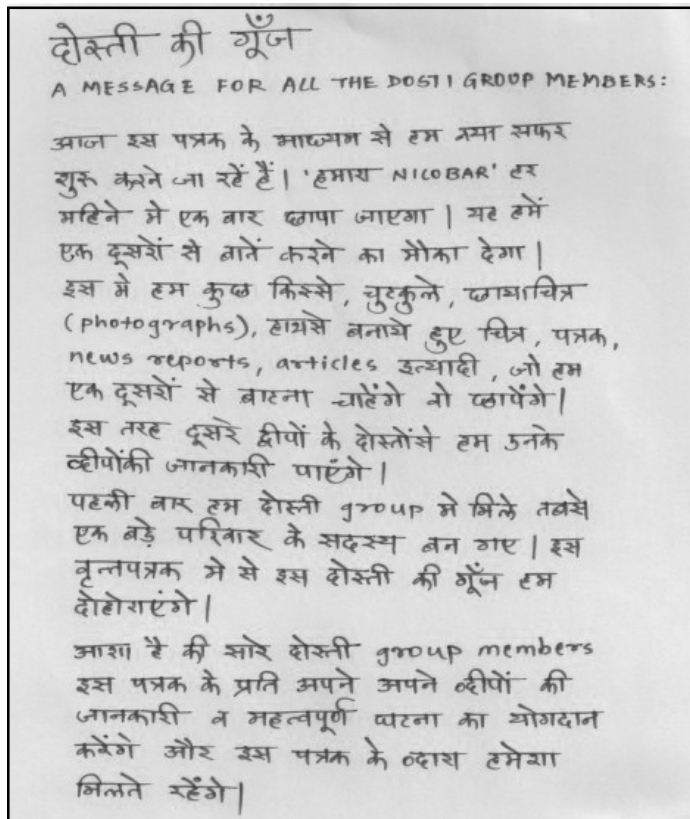 दोस्ती की गूँज
A MESSAGE FOR ALL THE DOSTI GROUP MEMBERS:
आज इस पत्रक के माध्यम से हम नया सफर
शुरू करने जा रहें हैं। 'हमारा NICOBAR' हर
महिने मे एक बार छापा जाएगा। यह हमें
एक दूसरों से बातें करने का मौका देगा।
इस मे हम कुछ किस्से, चुटकुले, छायाचित्र
(photographs), हाथसे बनाये हुए चित्र, पत्रक,
news reports, articles इत्यादी, जो हम
एक दूसरों से बाटना चाहेंगे वो छापेंगे।
इस तरह दूसरे द्वीपों के दोस्तोंसे हम उनके
व्दीपोंकी जानकारी पाएँगे।
पहली बार हम दोस्ती group मे मिले तबसे
एक बड़े परिवार के सदस्य बन गए। इस
वृत्तपत्रक मे से इस दोस्ती की गूँज हम
दोहोराएंगे।
आशा है की सारे दोस्ती group members
इस पत्रक के प्रति अपने अपने व्दीपों की
जानकारी व महत्वपूर्ण घटना का योगदान
करेंगे और इस पत्रक के व्दारा हमेशा
मिलते रहेंगे।